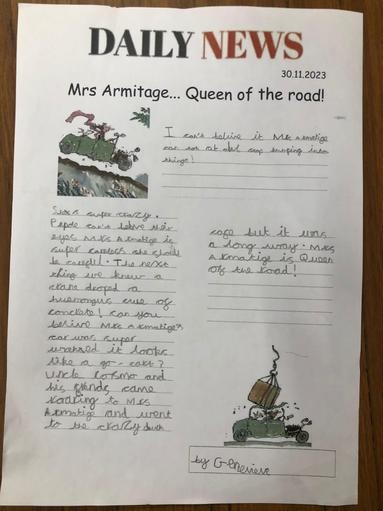 DAILY NEWS
30.11.2023
Mrs Armitage... Queen of the road!
I can't belive it Mrs Armatige
can not at all stop bumping into
things!
super crazy.
Peple can't belive their
eyes Mrs Armatige is
super careless she should
be carefull. The next
thing we knew a
crane droped a
huemongus cube of
concrete! can you
belive Mrs Armatige's
car was super
wrecked it looks
like a go-cart?
Uncle cosmo and
his frinds came
to Mrs
Armatige and went
to the crazy duck
cafe but it was
a long way. Mrs
Armatige is Queen
of the Road!
by Genevieve